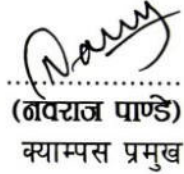 (नवराज पाण्डे)
क्याम्पस प्रमुख